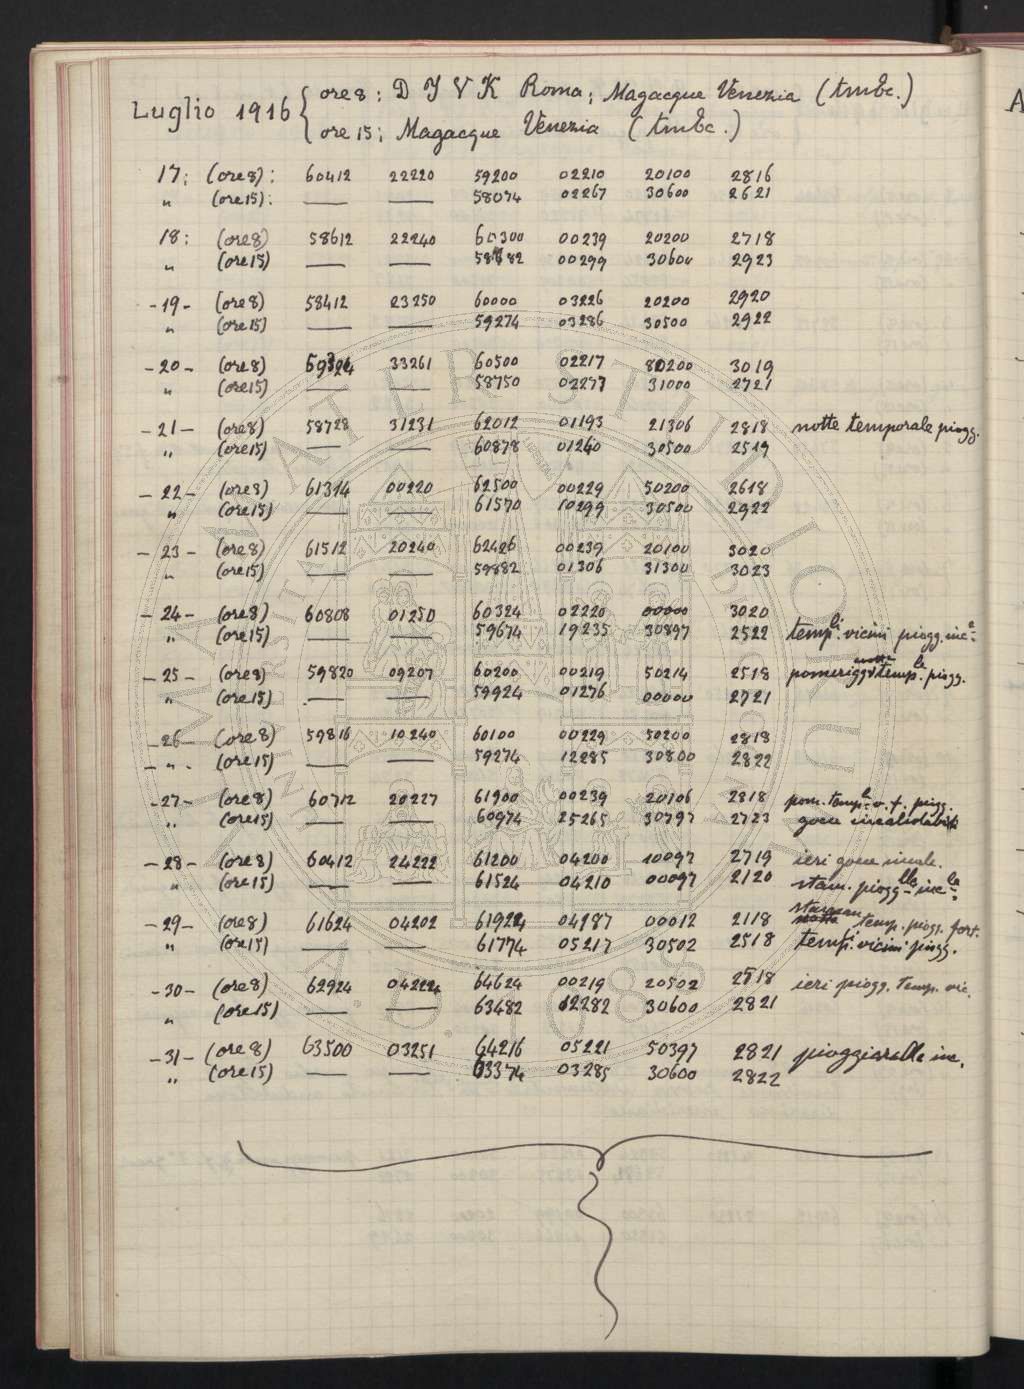 Luglio 1916 { ore 8 : D I V K Roma ; Magacque Venezia (tmbc.)
ore 15 ; Magacque Venezia (tmbc.)
17 : (ore 8) : 60412 22220 59200 02210 20100 2816
" (ore 15) : — — 58074 02267 30600 2621
18 : (ore 8) 58612 22240 60300 00239 20200 2718
" (ore 15) — — 58882 00299 30600 2923
- 19 - (ore 8) 58412 23250 60000 03226 20200 2920
" (ore 15) — — 59274 03286 30500 2922
- 20 - (ore 8) 33261 60500 02217 80200 3019
" (ore 15) — — 58750 02277 31000 2721
- 21 - (ore 8) 58728 31231 62012 01193 21306 2818 notte temporale piogg.
" (ore 15) — — 60878 01240 30500 2519
- 22 - (ore 8) 61314 00220 62500 00229 50200 2618
" (ore 15) — — 61570 10299 30500 2922
- 23 - (ore 8) 61512 20240 62426 00239 20100 3020
" (ore 15) — — 59882 01306 31300 3023
- 24 - (ore 8) 60808 01250 60324 02220 00000 3020
" (ore 15) — — 59674 19235 30897 2522 temp.li vicini piogg. inc.e
- 25 - (ore 8) 59820 09207 60200 00219 50214 2518 pomerigg. notte temp.le piogg.
" (ore 15) — — 59924 01276 00000 2721
- 26 - (ore 8) 59816 10240 60100 00229 50200 2818
- " - (ore 15) — — 59274 12285 30800 2822
- 27 - (ore 8) 60712 20227 61900 00239 20106 2818 pom. temp.le v. f. piogg.
" (ore 15) — — 60974 25265 30797 2723 gocce
- 28 - (ore 8) 60412 24222 61200 04200 10097 2719 ieri gocce incale.
" (ore 15) — — 61524 04210 00097 2120 stam. piogg.lle inc.le
- 29 - (ore 8) 61624 04202 61924 04187 00012 2118 temp. piogg. fort.
" (ore 15) — — 61774 05217 30502 2518 temp.li vicini piogg.
- 30 - (ore 8) 62924 04224 64624 00219 20502 2518 ieri piogg. temp. vic.
" (ore 15) — — 63482 02282 30600 2821
- 31 - (ore 8) 63500 03251 64216 05221 50397 2821 pioggiarelle inc.
" (ore 15) — — 63374 03285 30600 2822
ALMA MATER STUDIORUM
A.D. 1088